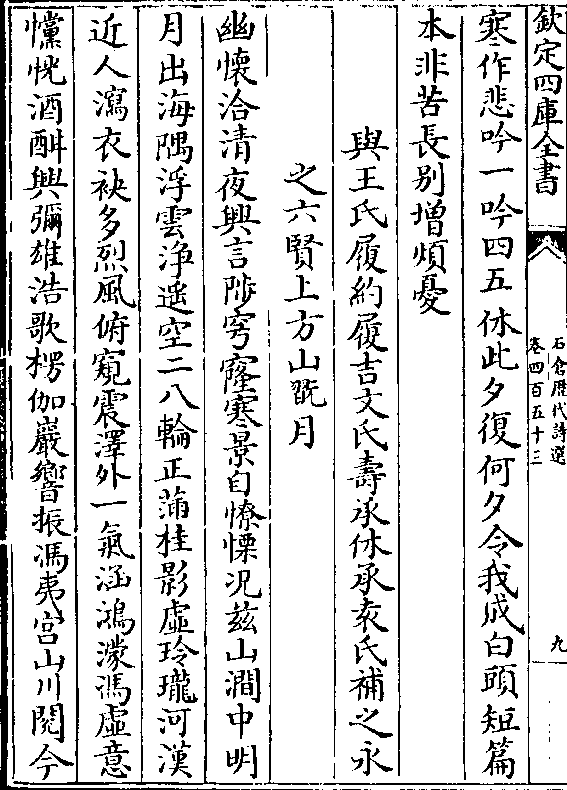 欽定四庫全書
石倉歷代詩選
卷四百五十三
九
寒作悲吟一吟四五休此夕復何夕令我成白頭短篇
本非苦長别增煩憂
與王氏履約履吉文氏壽承休承袁氏補之永
之六賢上方山翫月
幽懷洽清夜興言陟穹窿寒景自憭慄况兹山澗中明
月出海隅浮雲浄遥空二八輪正蒲桂影虚玲瓏河漢
近人瀉衣袂多烈風俯窺震澤外一氣涵鴻濛馮虚意
戃恍酒酣興彌雄浩歌楞伽巖響振馮夷宫山川閱今